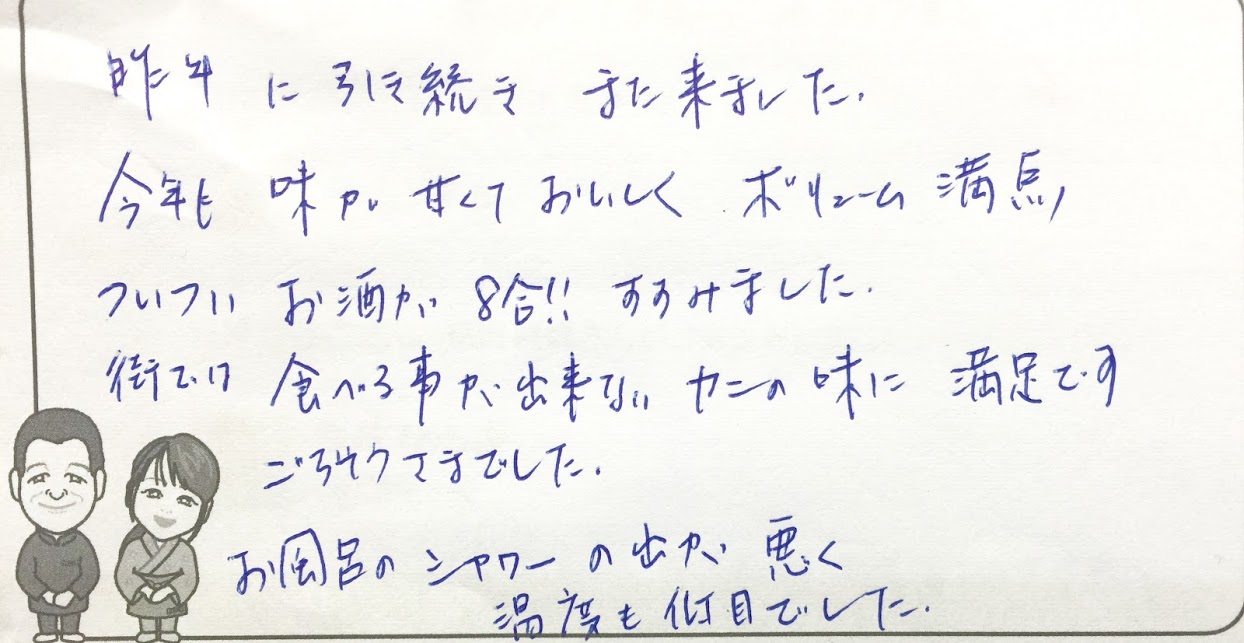 昨年に引き続き また来ました.
今年も 味が 甘くて おいしく ボリューム 満点,
ついつい お酒が 8合!! すすみました.
街では 食べる事が出来ない カニの味に 満足です
ごちそうさまでした.
お風呂の シャワーの出が 悪く
温度も 低目でした.